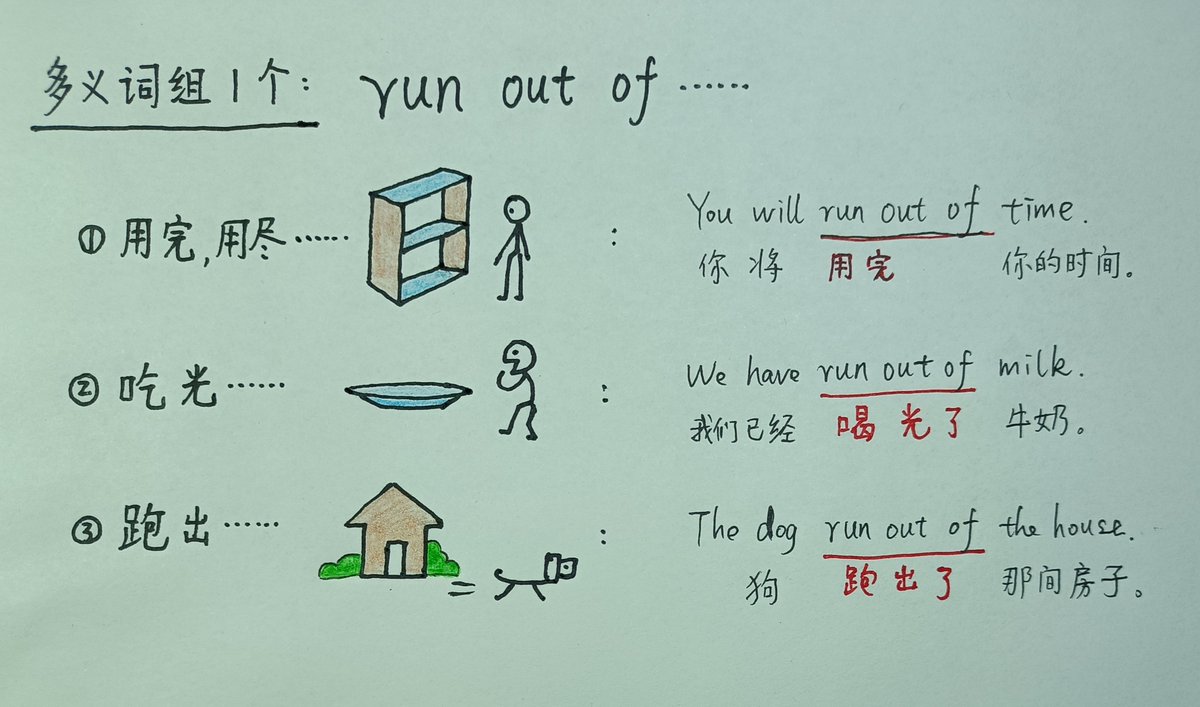 多义词组1个: run out of ……
①用完,用尽…… : You will run out of time.
你 将 用完 你的时间。
②吃光…… : We have run out of milk.
我们已经 喝光了 牛奶。
③跑出…… : The dog run out of the house.
狗 跑出了 那间房子。